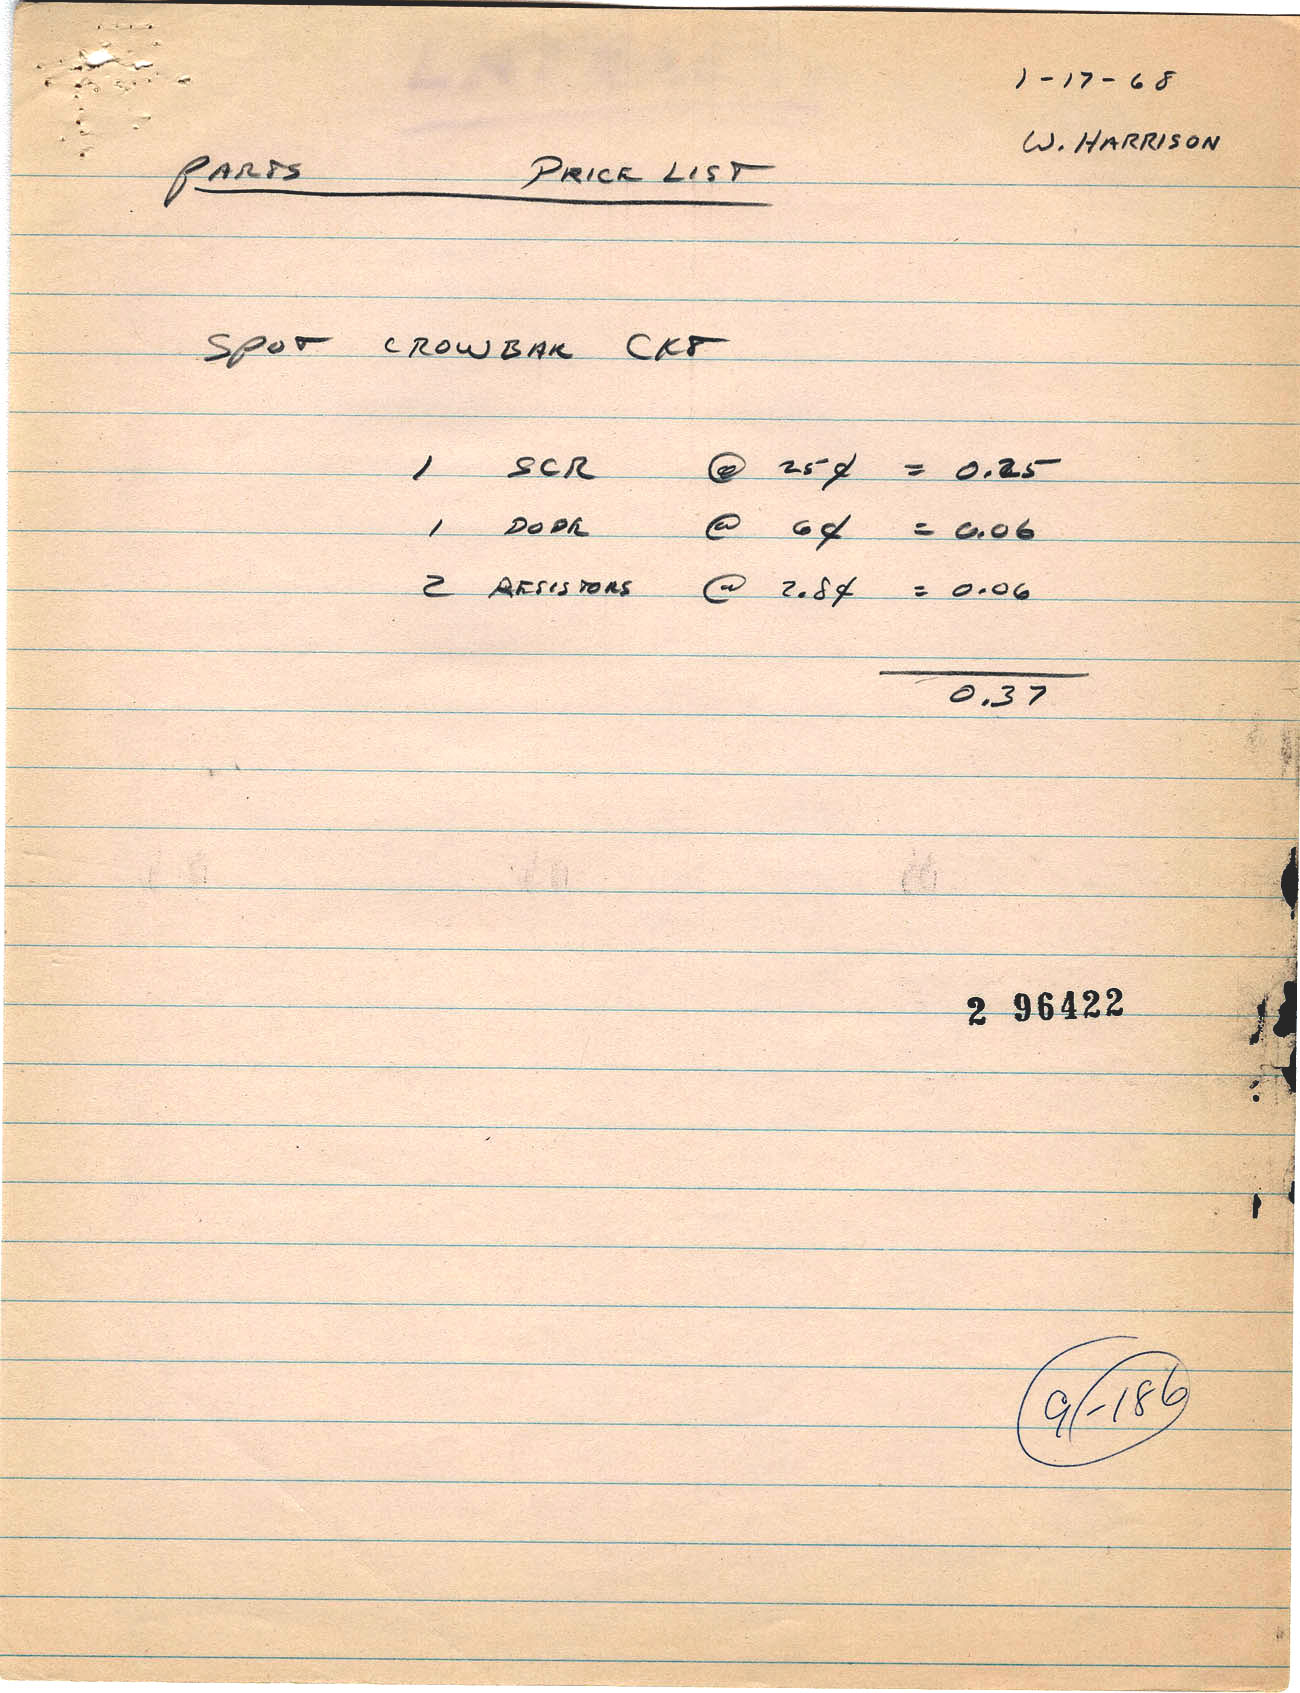 1-17-68
W. HARRISON
PARTS PRICE LIST
SPOT CROWBAR CKT
1 SCR @ 25¢ = 0.25
1 DODE @ 6¢ = 0.06
2 RESISTORS @ 2.8¢ = 0.06
0.37
2 96422
9-186